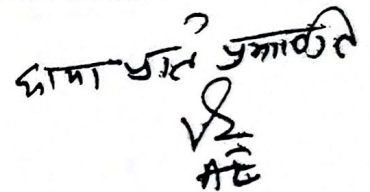 छाया प्रति प्रमाणित
AE